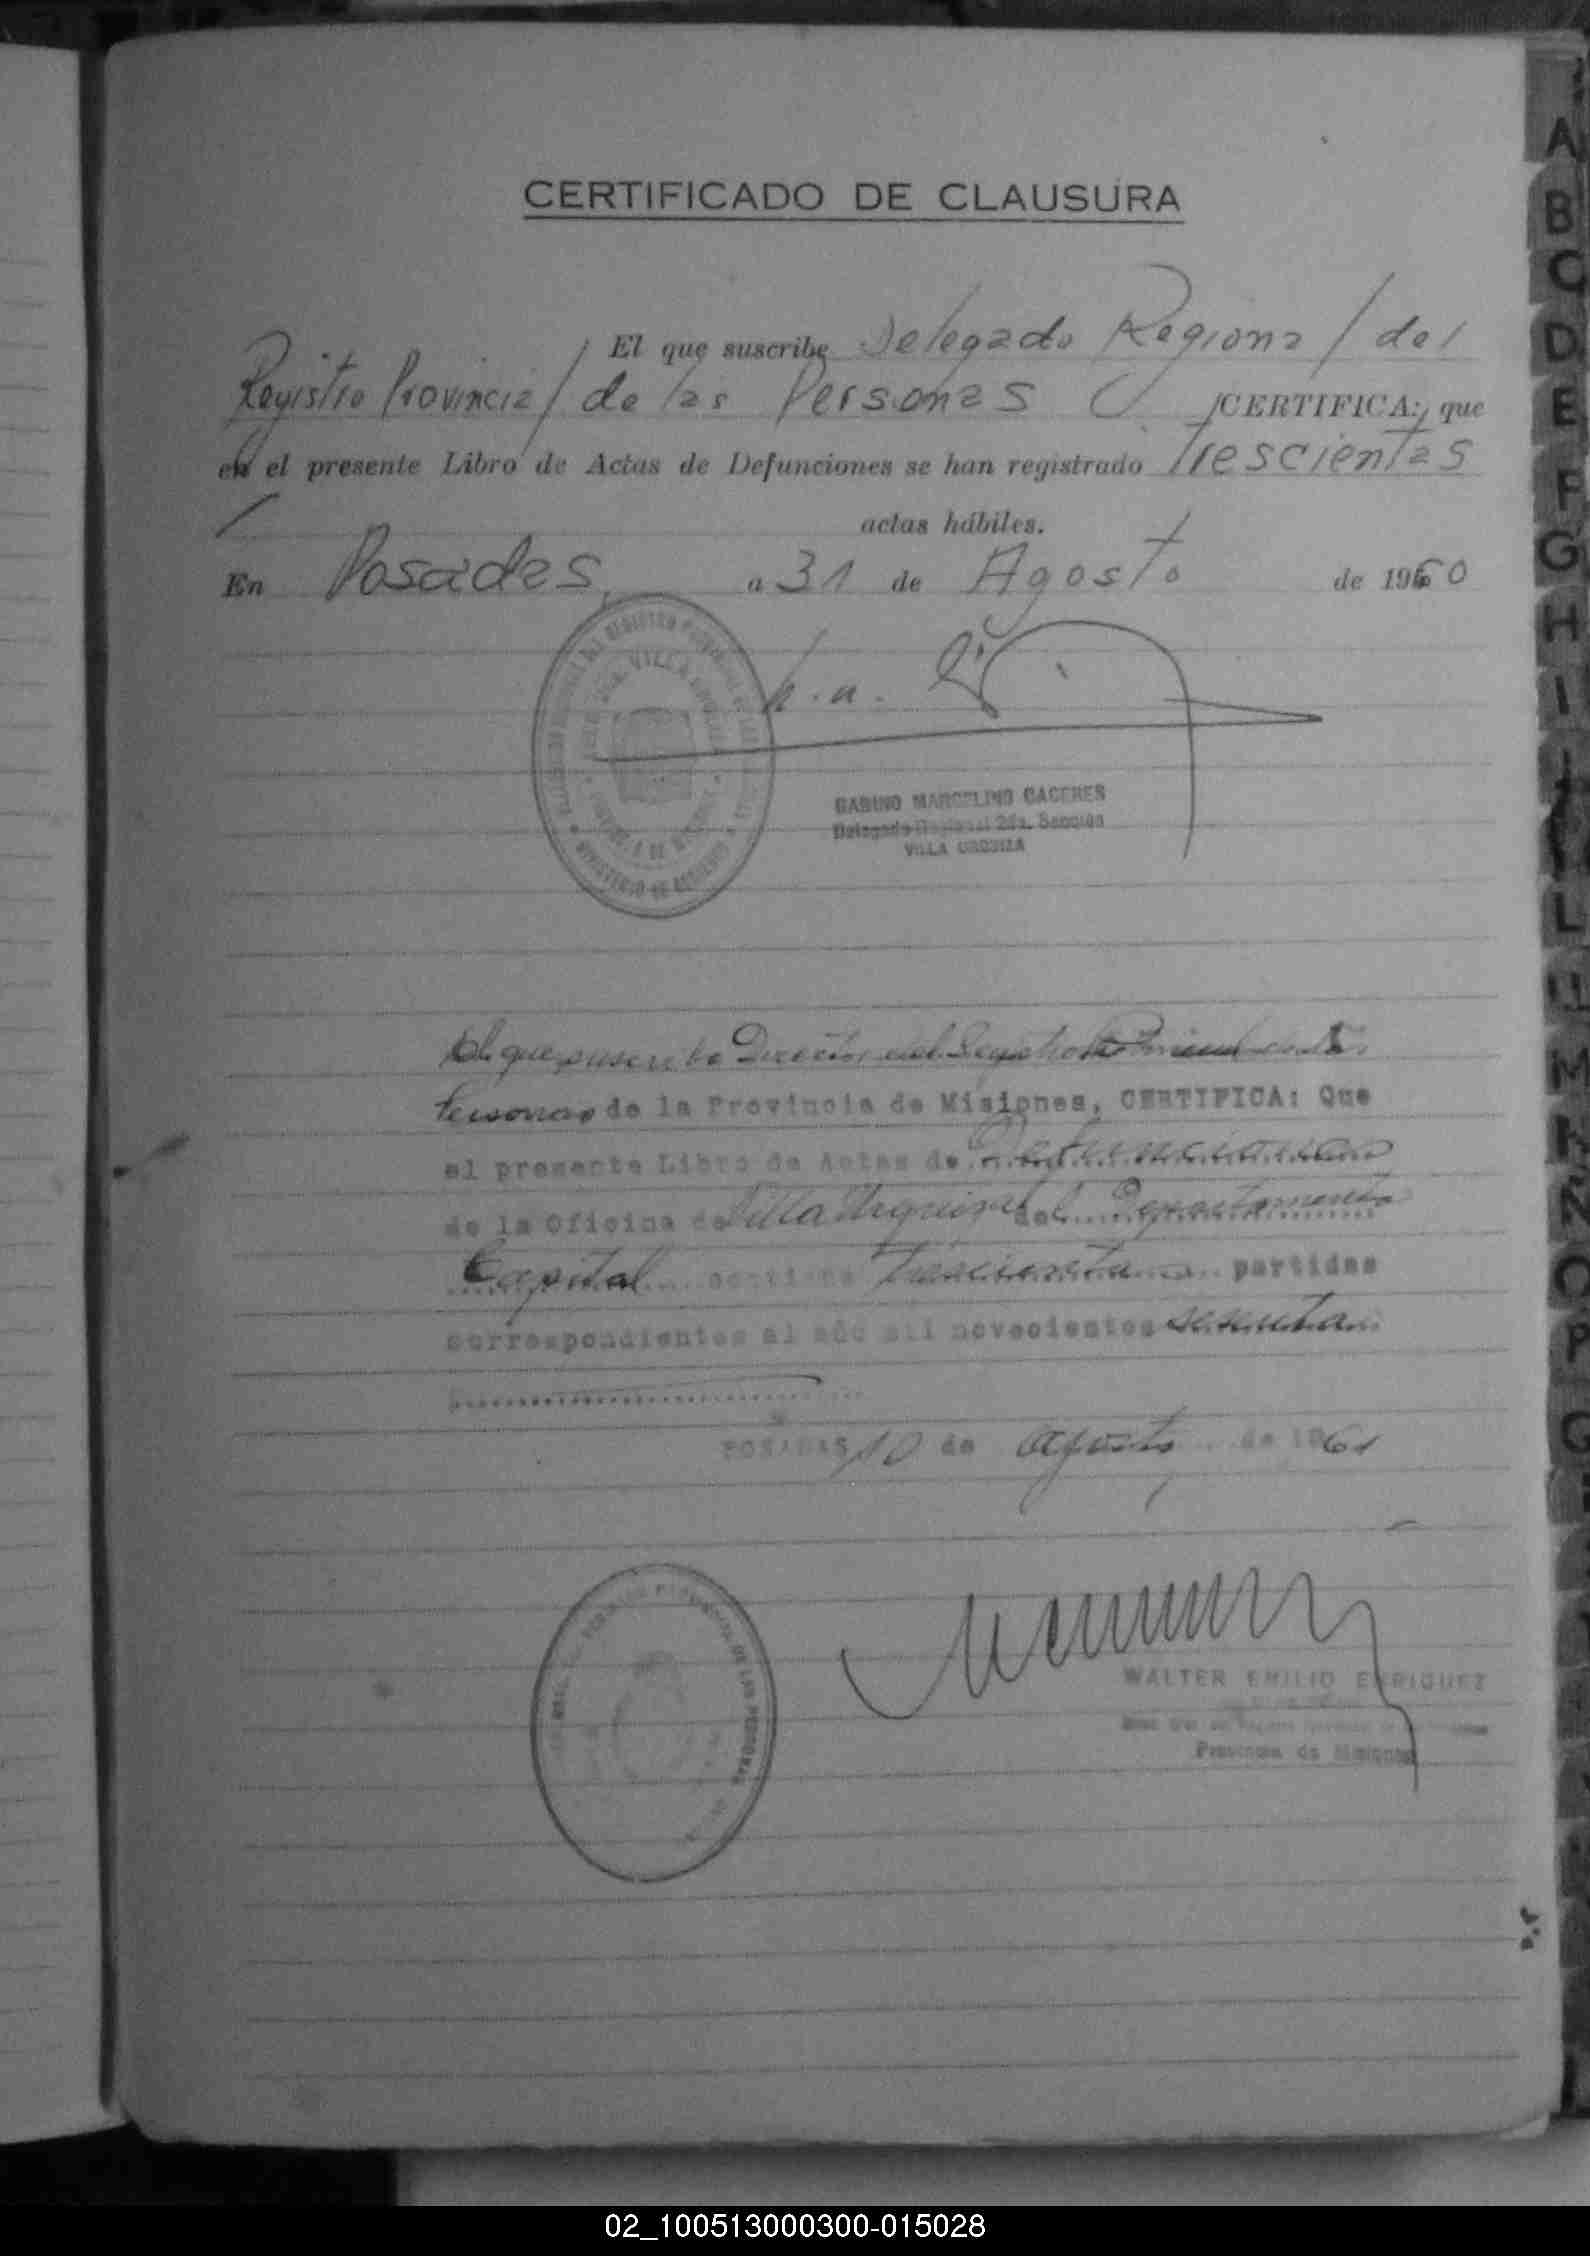 CERTIFICADO DE CLAUSURA
El que suscribe Delegado Regional del
Registro Provincial de las Personas CERTIFICA: que
en el presente Libro de Actas de Defunciones se han registrado Trescientas
actas hábiles.
En Posadas, a 31 de Agosto de 1960
VILLA URQUIZA
MINISTERIO DE GOBIERNO
GABINO MARCELINO CACERES
Delegado Regional 2da. Sección
VILLA URQUIZA
El que suscribe Director del Registro Provincial de las
Personas de la Provincia de Misiones, CERTIFICA: Que
el presente Libro de Actas de Defunciones
de la Oficina de Villa Urquiza del Departamento
Capital contiene Trescientas partidas
correspondientes al año mil novecientos sesenta
POSADAS 10 de agosto de 1961
DE LAS PERSONAS
WALTER EMILIO ENRIQUEZ
Provincia de Misiones
A
B
C
D
E
F
G
H
I
J
L
M
N
Ñ
O
P
Q
02_100513000300-015028